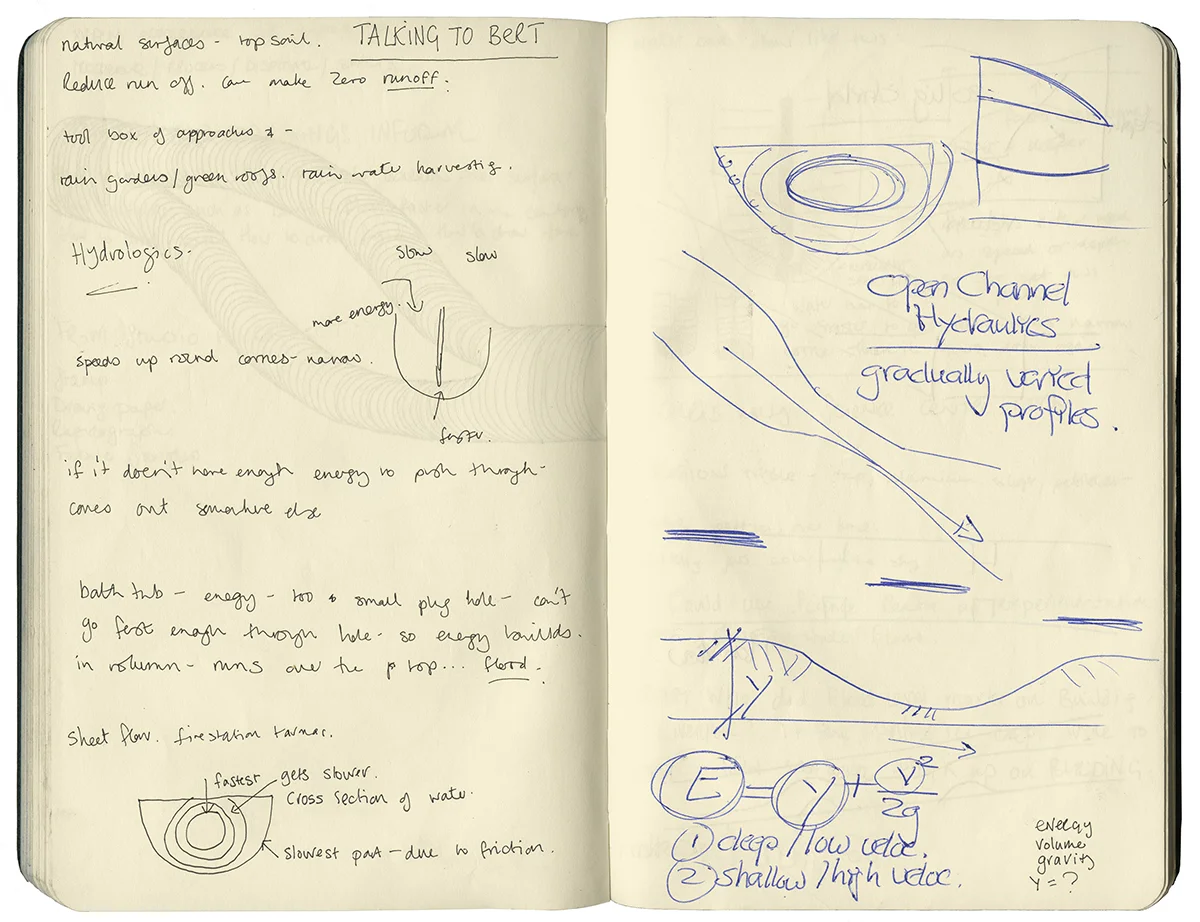 natural surfaces - top soil. TALKING TO BERT
Reduce run off. can make zero runoff.
tool box of approaches & -
rain gardens/green roofs. rain water harvesting.
Hydrologics.
slow slow
more energy.
speeds up round corners - narrow.
faster.
if it doesn't have enough energy to push through -
comes out somewhere else
bath tub - energy - too small plug hole - can't
go fast enough through hole - so energy builds.
in volumn - runs over the top... flood.
Sheet flow. fire station tarmac.
fastest gets slower.
Cross section of water.
slowest part - due to friction.
Open Channel
Hydraulics
gradually varied
profiles.
Y
E = Y + V²/2g
① deep / low veloc.
② shallow / high veloc.
energy
volume
gravity
Y = ?